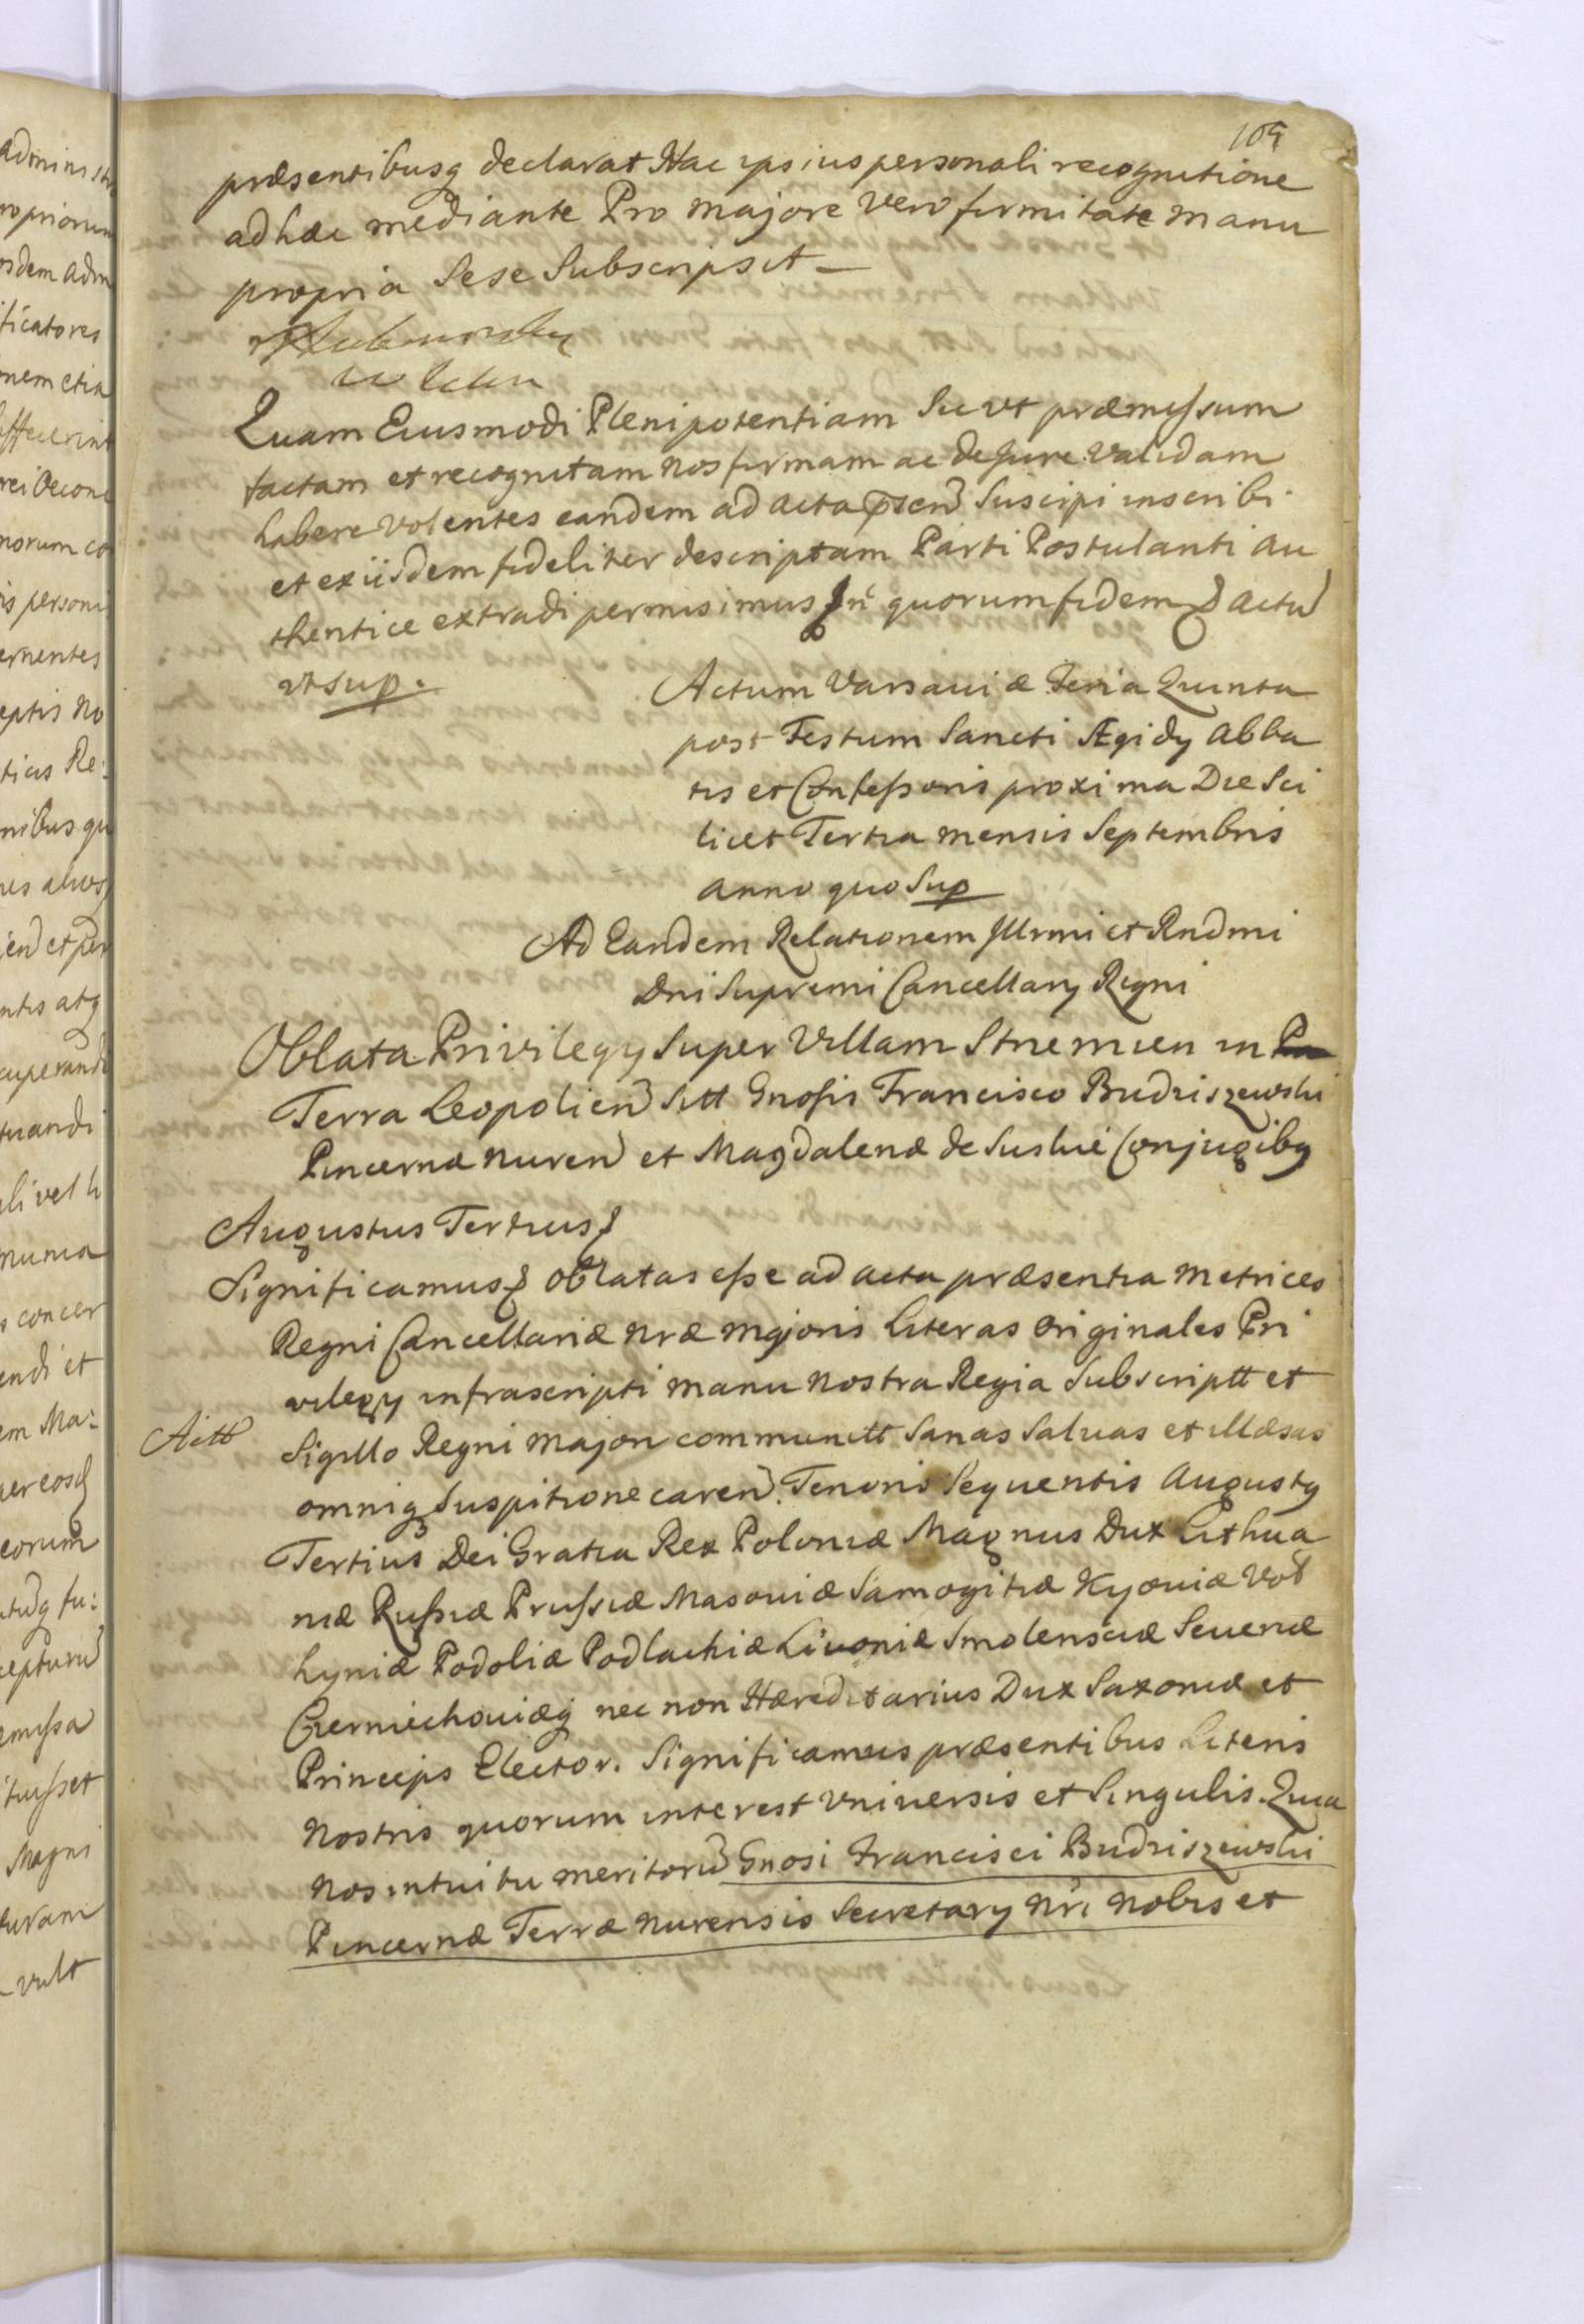 109
præsentibusq declarat Hac ipsius personali recognitione
ad hæc mediante Pro majore vero firmitate manu
propria Sese Subscripsit
Quam Eiusmodi Plenipotentiam Sic vt præmissum
factam et recognitam nos firmam ac de Jure validam
habere volentes eandem ad acta psen Suscipi inscribi
et ex iisdem fideliter descriptam Parti Postulanti au
thentice extradi permisimus In quorum fidem Actu
vt sup.
Actum Varsaviæ Feria Quinta
post Festum Sancti Ægidy Abba
tis et Confessoris proxima Die Sci
licet Tertia mensis Septembris
anno quo Sup
Ad Eandem Relationem Illrmi et Rndmi
Dni Supremi Cancellary Regni
Oblata Privilegy Super Villam Strzemien in
Terra Leopolien Sitt Gnosis Francisco Budziszewski
Pincernæ Nuren et Magdalenæ de Suskie Conjugibq
Augustus Tertius
Significamus Oblatas esse ad acta præsentia Metrices
Regni Cancellariæ nræ Majoris Literas Originales Pri
vilegy infrascripti manu nostra Regia Subscriptt et
Actt
Sigillo Regni Majori communitt Sanas Salvas et illæsas
omniq Suspitione caren. Tenoris Sequentis Augustq
Tertius Dei Gratia Rex Poloniæ Magnus Dux Lithua
niæ Russiæ Prussiæ Masoviæ Samogitiæ Kyoviæ Vol
hyniæ Podoliæ Podlachiæ Livoniæ Smolensciæ Severiæ
Czerniechoviæq nec non Hæreditarius Dux Saxoniæ et
Princeps Elector. Significamus præsentibus Literis
Nostris quorum interest Vniversis et Singulis. Quia
Nos intuitu meritoru Gnosi Francisci Budziszewski
Pincernæ Terræ Nurensis Secretary Nri Nobis et